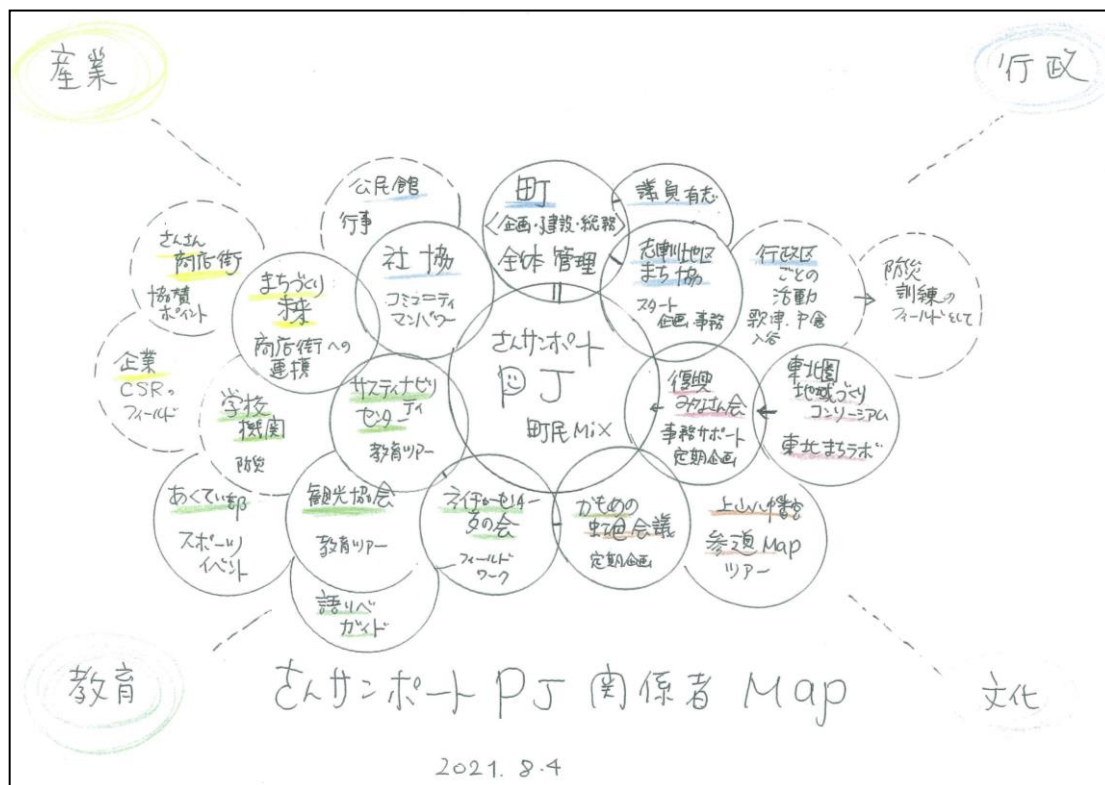 産業
行政
公民館
行事
町
〈企画・建設・総務〉
全体管理
議員有志
さんさん
商店街
協賛
ポイント
まちづくり
未来
商店街への
連携
社協
コミュニティ
マンパワー
志津川地区
まち協
スタート
企画・事務
行政区
ごとの
活動
歌津、戸倉
入谷
防災
訓練の
フィールドとして
企業
CSRの
フィールド
学校
機関
防災
サスティナビリ
ティ
センター
教育ツアー
さんサンポート
PJ
町民Mix
復興
みなさん会
事務サポート
定期企画
東北圏
地域づくり
コンソーシアム
東北まちラボ
あくてぃ部
スポーツ
イベント
観光協会
教育ツアー
ネイチャーセンター
友の会
フィールド
ワーク
かもめの
虹色会議
定期企画
上山八幡宮
参道Map
ツアー
語りべ
ガイド
教育
さんサンポート PJ 関係者 Map
文化
2021.8.4